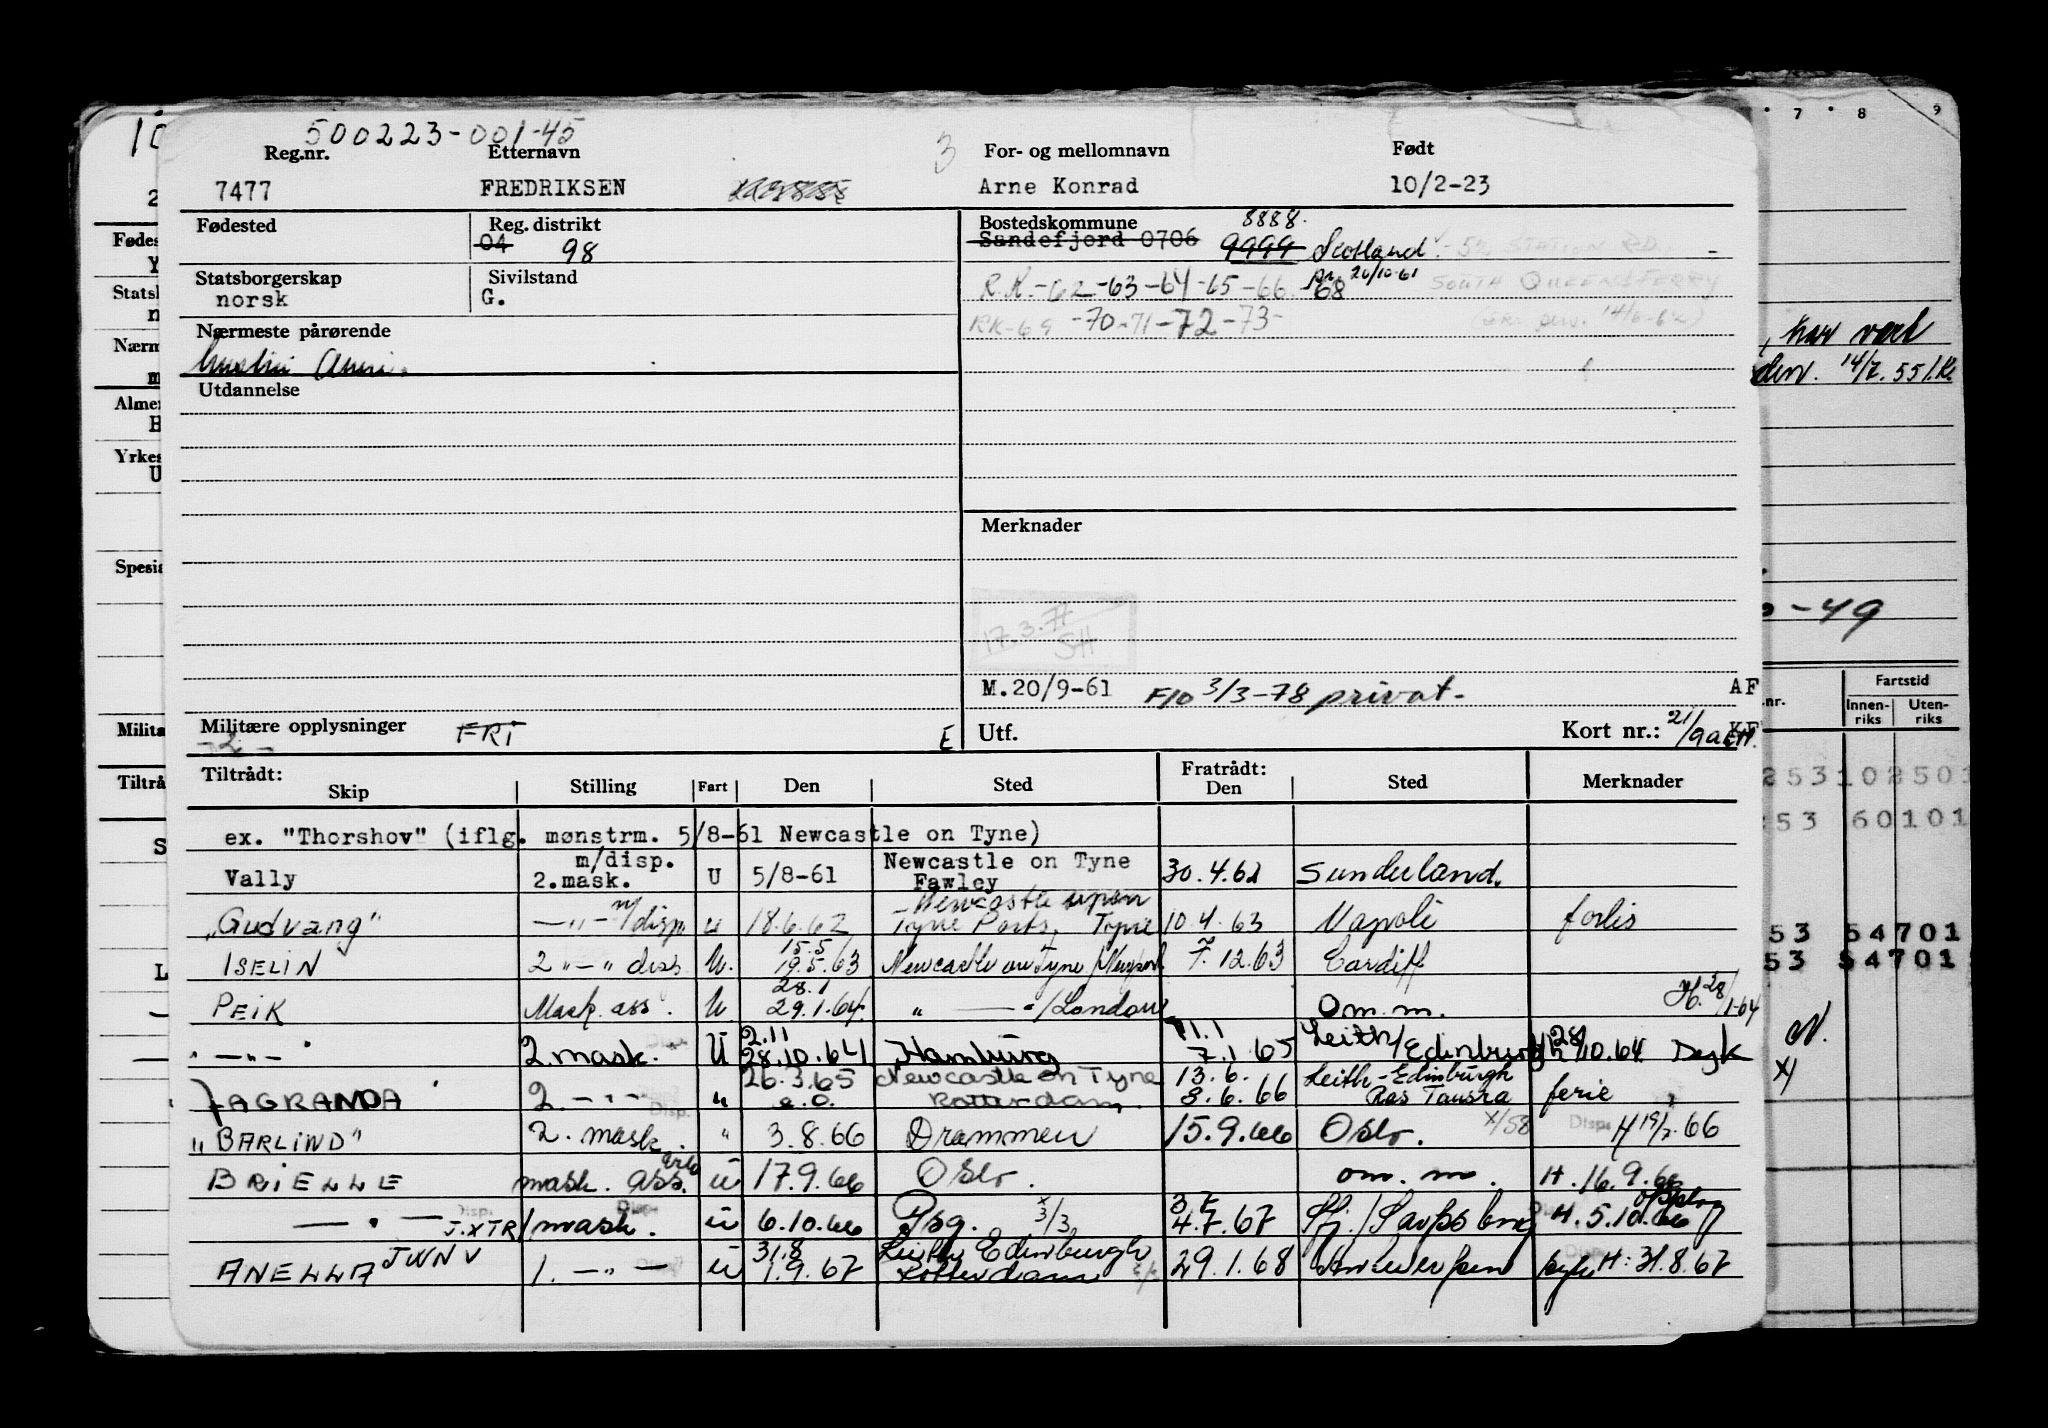 500223-001-45
Reg.nr. Etternavn 3 For- og mellomnavn Født
7477 FREDRIKSEN Arne Konrad 10/2-23
Fødested Reg. distrikt Bostedskommune 8888.
04 98 Sandefjord 0706 9999 Scotland
Statsborgerskap Sivilstand
norsk G.
R.K.-62-63-64-65-66-68 20/10-61
Nærmeste pårørende
RK-69-70-71-72-73-
Utdannelse
Merknader
17.3.77
SH
M.20/9-61 3/3-78 privat. AF
Militære opplysninger FRI E Utf. Kort nr.: 21/9
-2-
Tiltrådt: Fratrådt:
Skip Stilling Fart Den Sted Den Sted Merknader
ex. "Thorshov" (iflg. mønstrm. 5/8-61 Newcastle on Tyne)
Vally m/disp. 2.mask. U 5/8-61 Newcastle on Tyne Fawley 30.4.62 Sunderland.
"Gudvang" -"- m/disp. u 18.6.62 Newcastle upon Tyne Ports, Tyne 10.4.63 Napoli forlis
ISELIN 2 -"- U. 15.5 19.5.63 Newcastle on Tyne / Newport 7.12.63 Cardiff
PEIK Mask. ass. U. 28.1 29.1.64 " — " /London om.m. H. 28/1-64
-"- 2.mask. U 2.11 28.10.64 Hamburg 11.1 7.1.65 Leith/Edinburgh 28/10.64
JAGRANDA 2. -"- " 26.3.65 e.o. Newcastle on Tyne Rotterdam 13.6. 8.6.66 Leith-Edinburgh Ras Tanura ferie
"BARLIND" 2. mask. " 3.8.66 Drammen 15.9.66 Oslo. Disp. H 19/7.66
BRIELLE mask. ass. ü 17.9.66 Oslo. om. m. H. 16.9.66
— " — J.XTR 1 mask. ü 6.10.66 Psg. 4.7.67 Sfj./Sarpsborg H. 5.10.66
ANELLA JWNV 1. -"- ü 31.8 1.9.67 Leith Edinburgh Rotterdam 29.1.68 Antwerpen H: 31.8.67
7 8 9
, har vært
14/7.55
-49
Fartstid
nr. Innen-riks Uten-riks
253 102501
253 60101
53 54701
53 54701